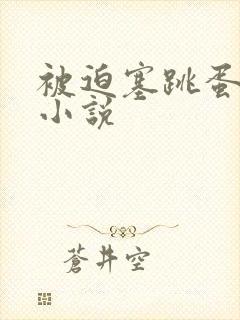 被迫塞跳蛋
小說
蒼井空